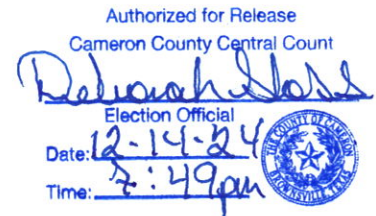 Authorized for Release
Cameron County Central Count
Deborah
Election Official
Date: 12-14-24
Time: 7:49pm
THE COUNTY OF CAMERON
BROWNSVILLE, TEXAS